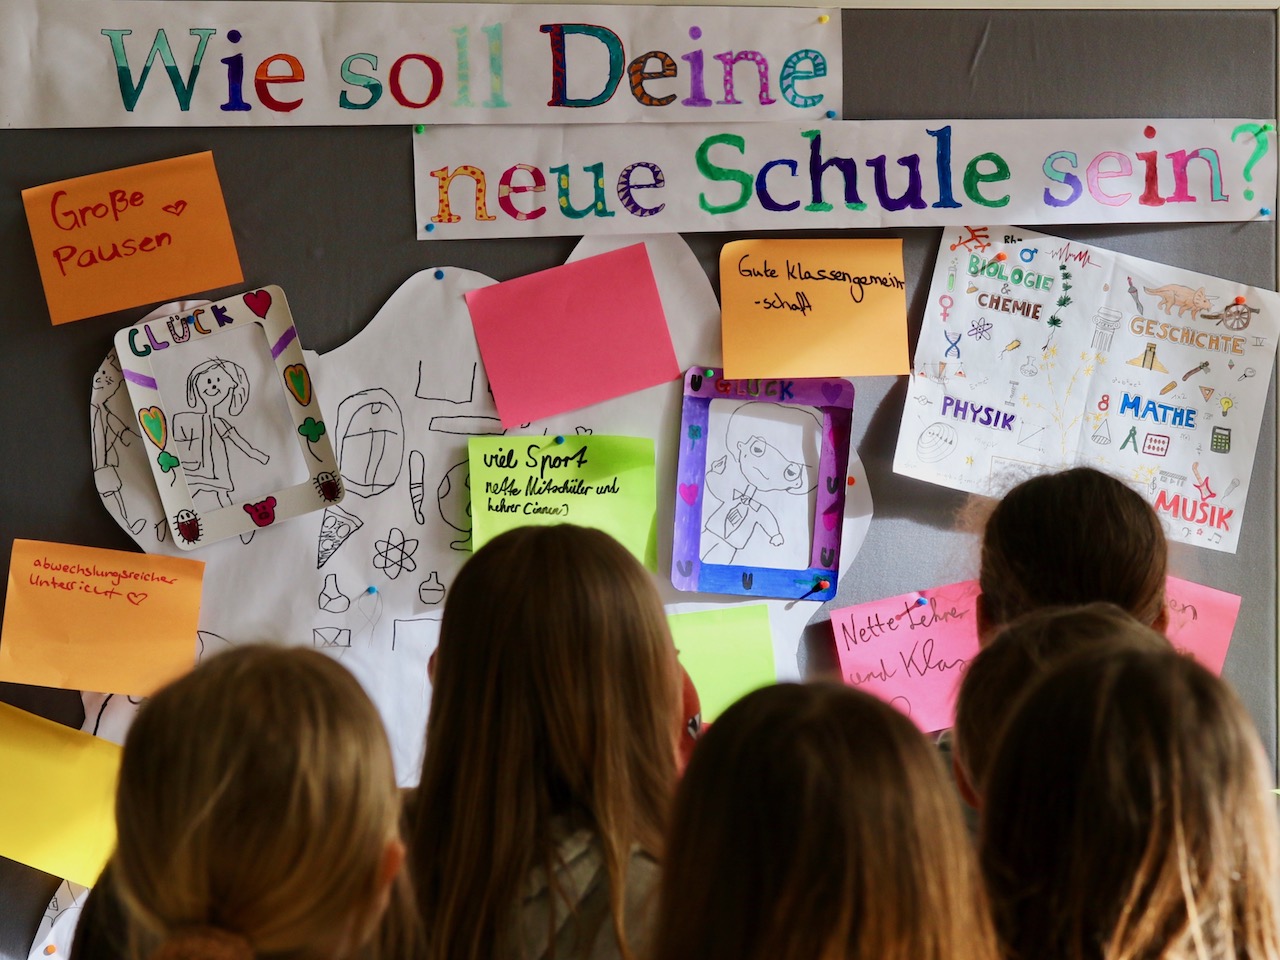 Wie soll Deine
neue Schule sein?
Große
Pausen
GLÜCK
Gute Klassengemein
-schaft
Rh-
BIOLOGIE
&
CHEMIE
GESCHICHTE
PHYSIK
8 MATHE
MUSIK
GLÜCK
viel Sport
nette Mitschüler und
Lehrer (innen)
abwechslungsreicher
Unterricht
Nette Lehrer
und Klas